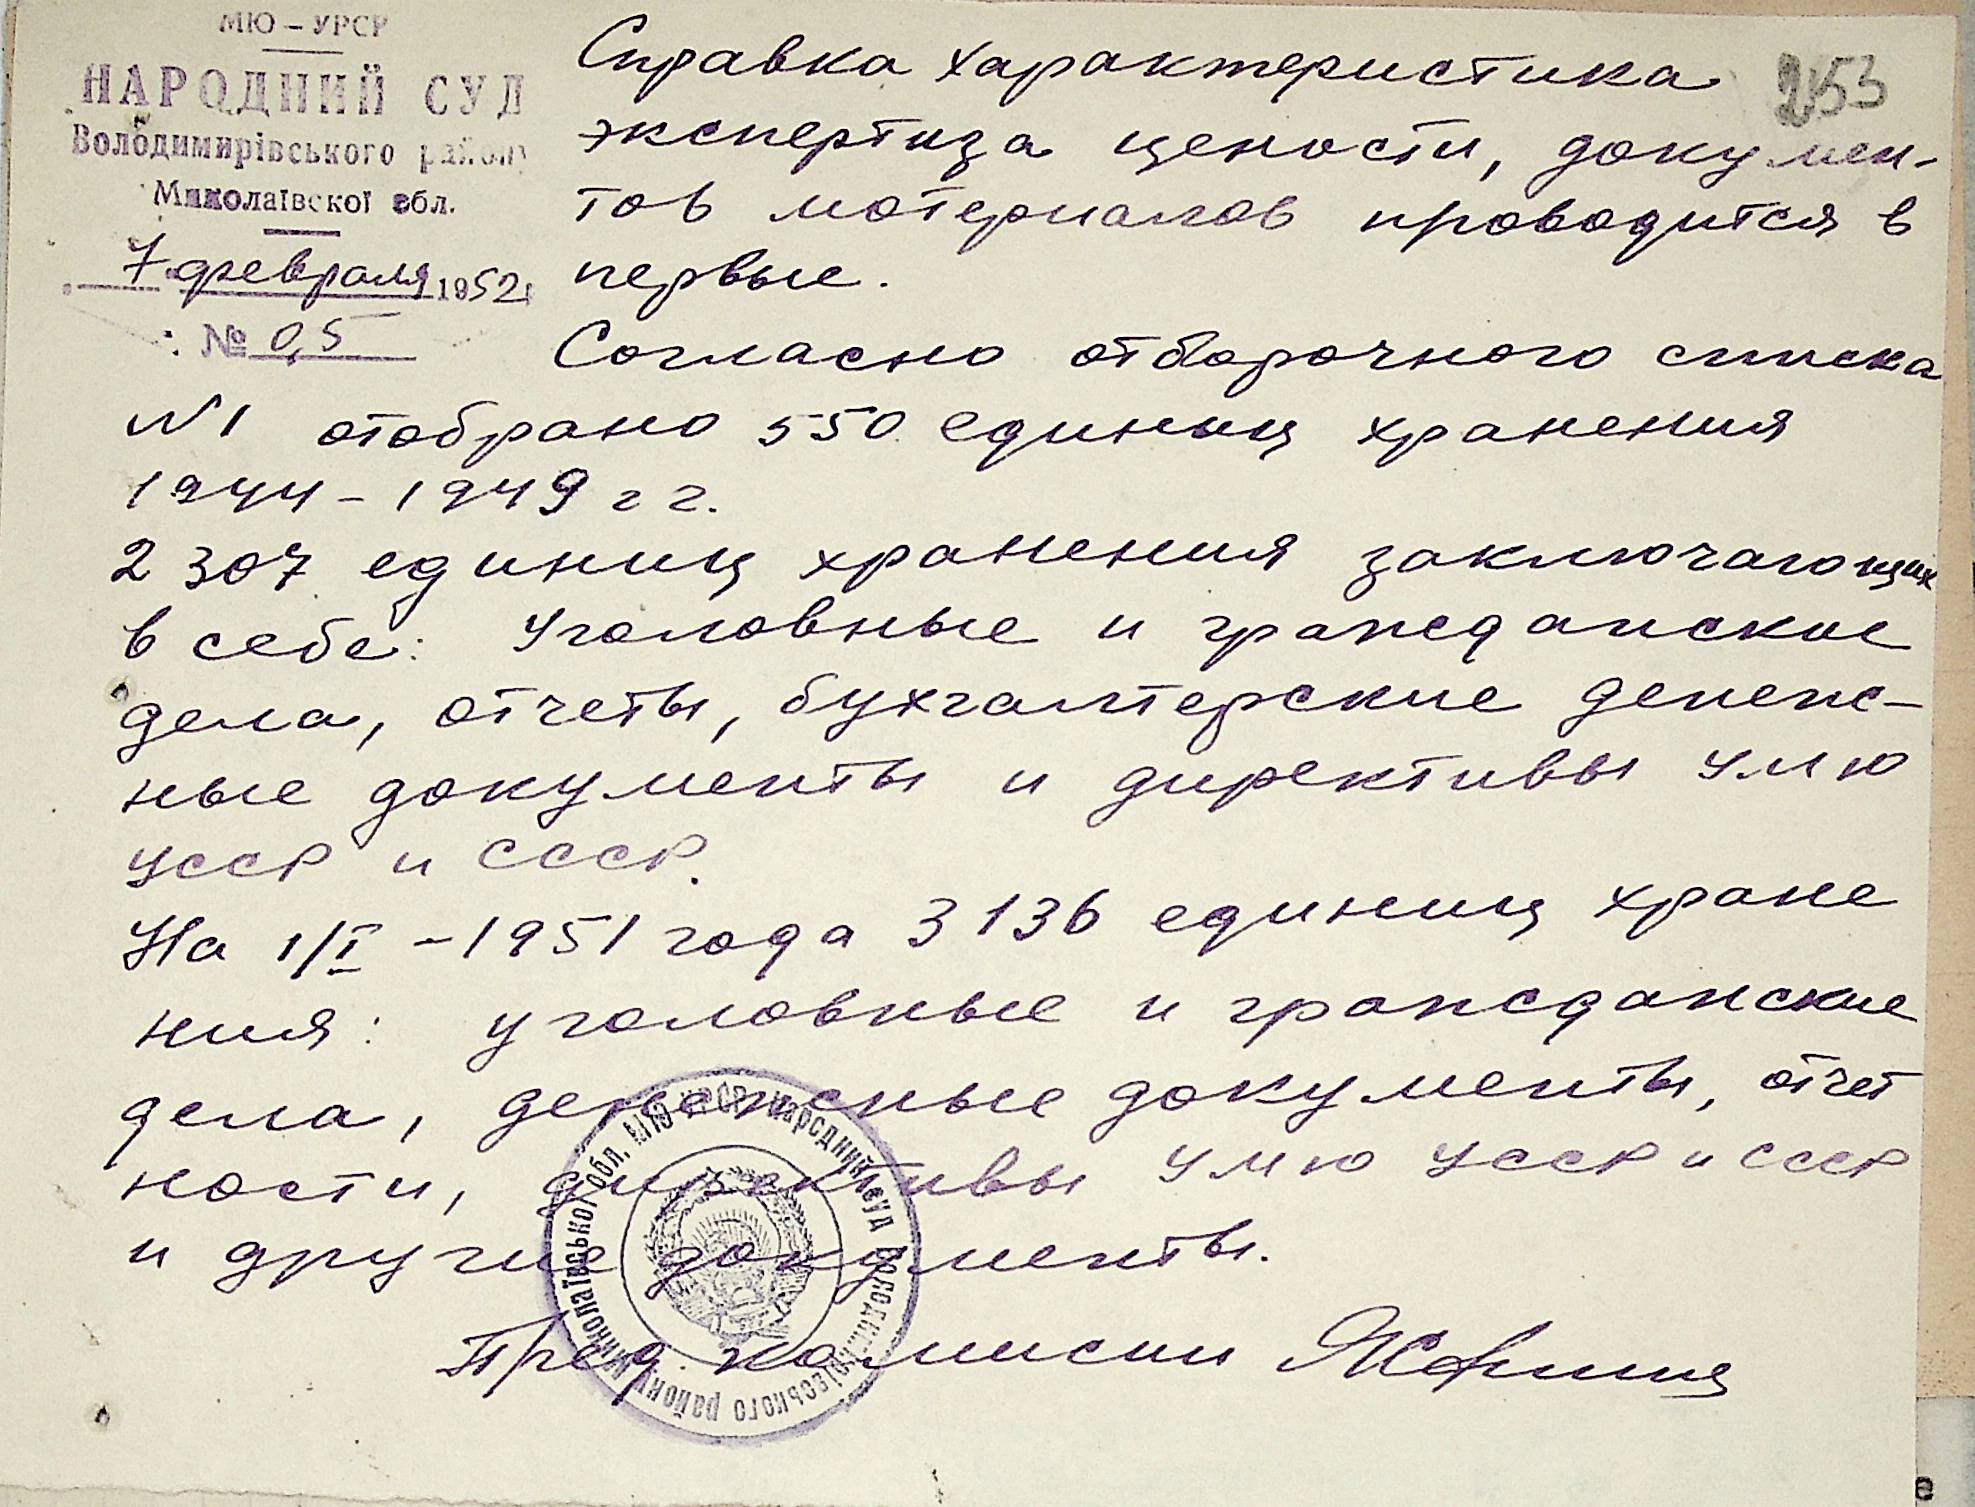 МЮ – УРСР
НАРОДНИЙ СУД
Володимирівського району
Миколаївскої обл.
7 февраля 1952
№ 0,5
253
Справка характеристика
экспертиза цености, докумен-
тов материалов проводится в
первые.
Согласно отборочного списка
N1 отобрано 550 единиц хранения
1944 – 1949 г г.
2307 единиц хранения заключающих
в себе: Уголовные и гражданские
дела, отчеты, бухгалтерские денеж-
ные документы и директивы УМЮ
УССР и СССР.
На 1/I – 1951 года 3136 единиц хране
ния: уголовные и гражданские
дела, денежные документы, отчет
ности, директивы УМЮ УССР и СССР
и другие документы.
Пред. комисии
Миколаївської обл. МЮ УРСР Народний суд Володимирівського району